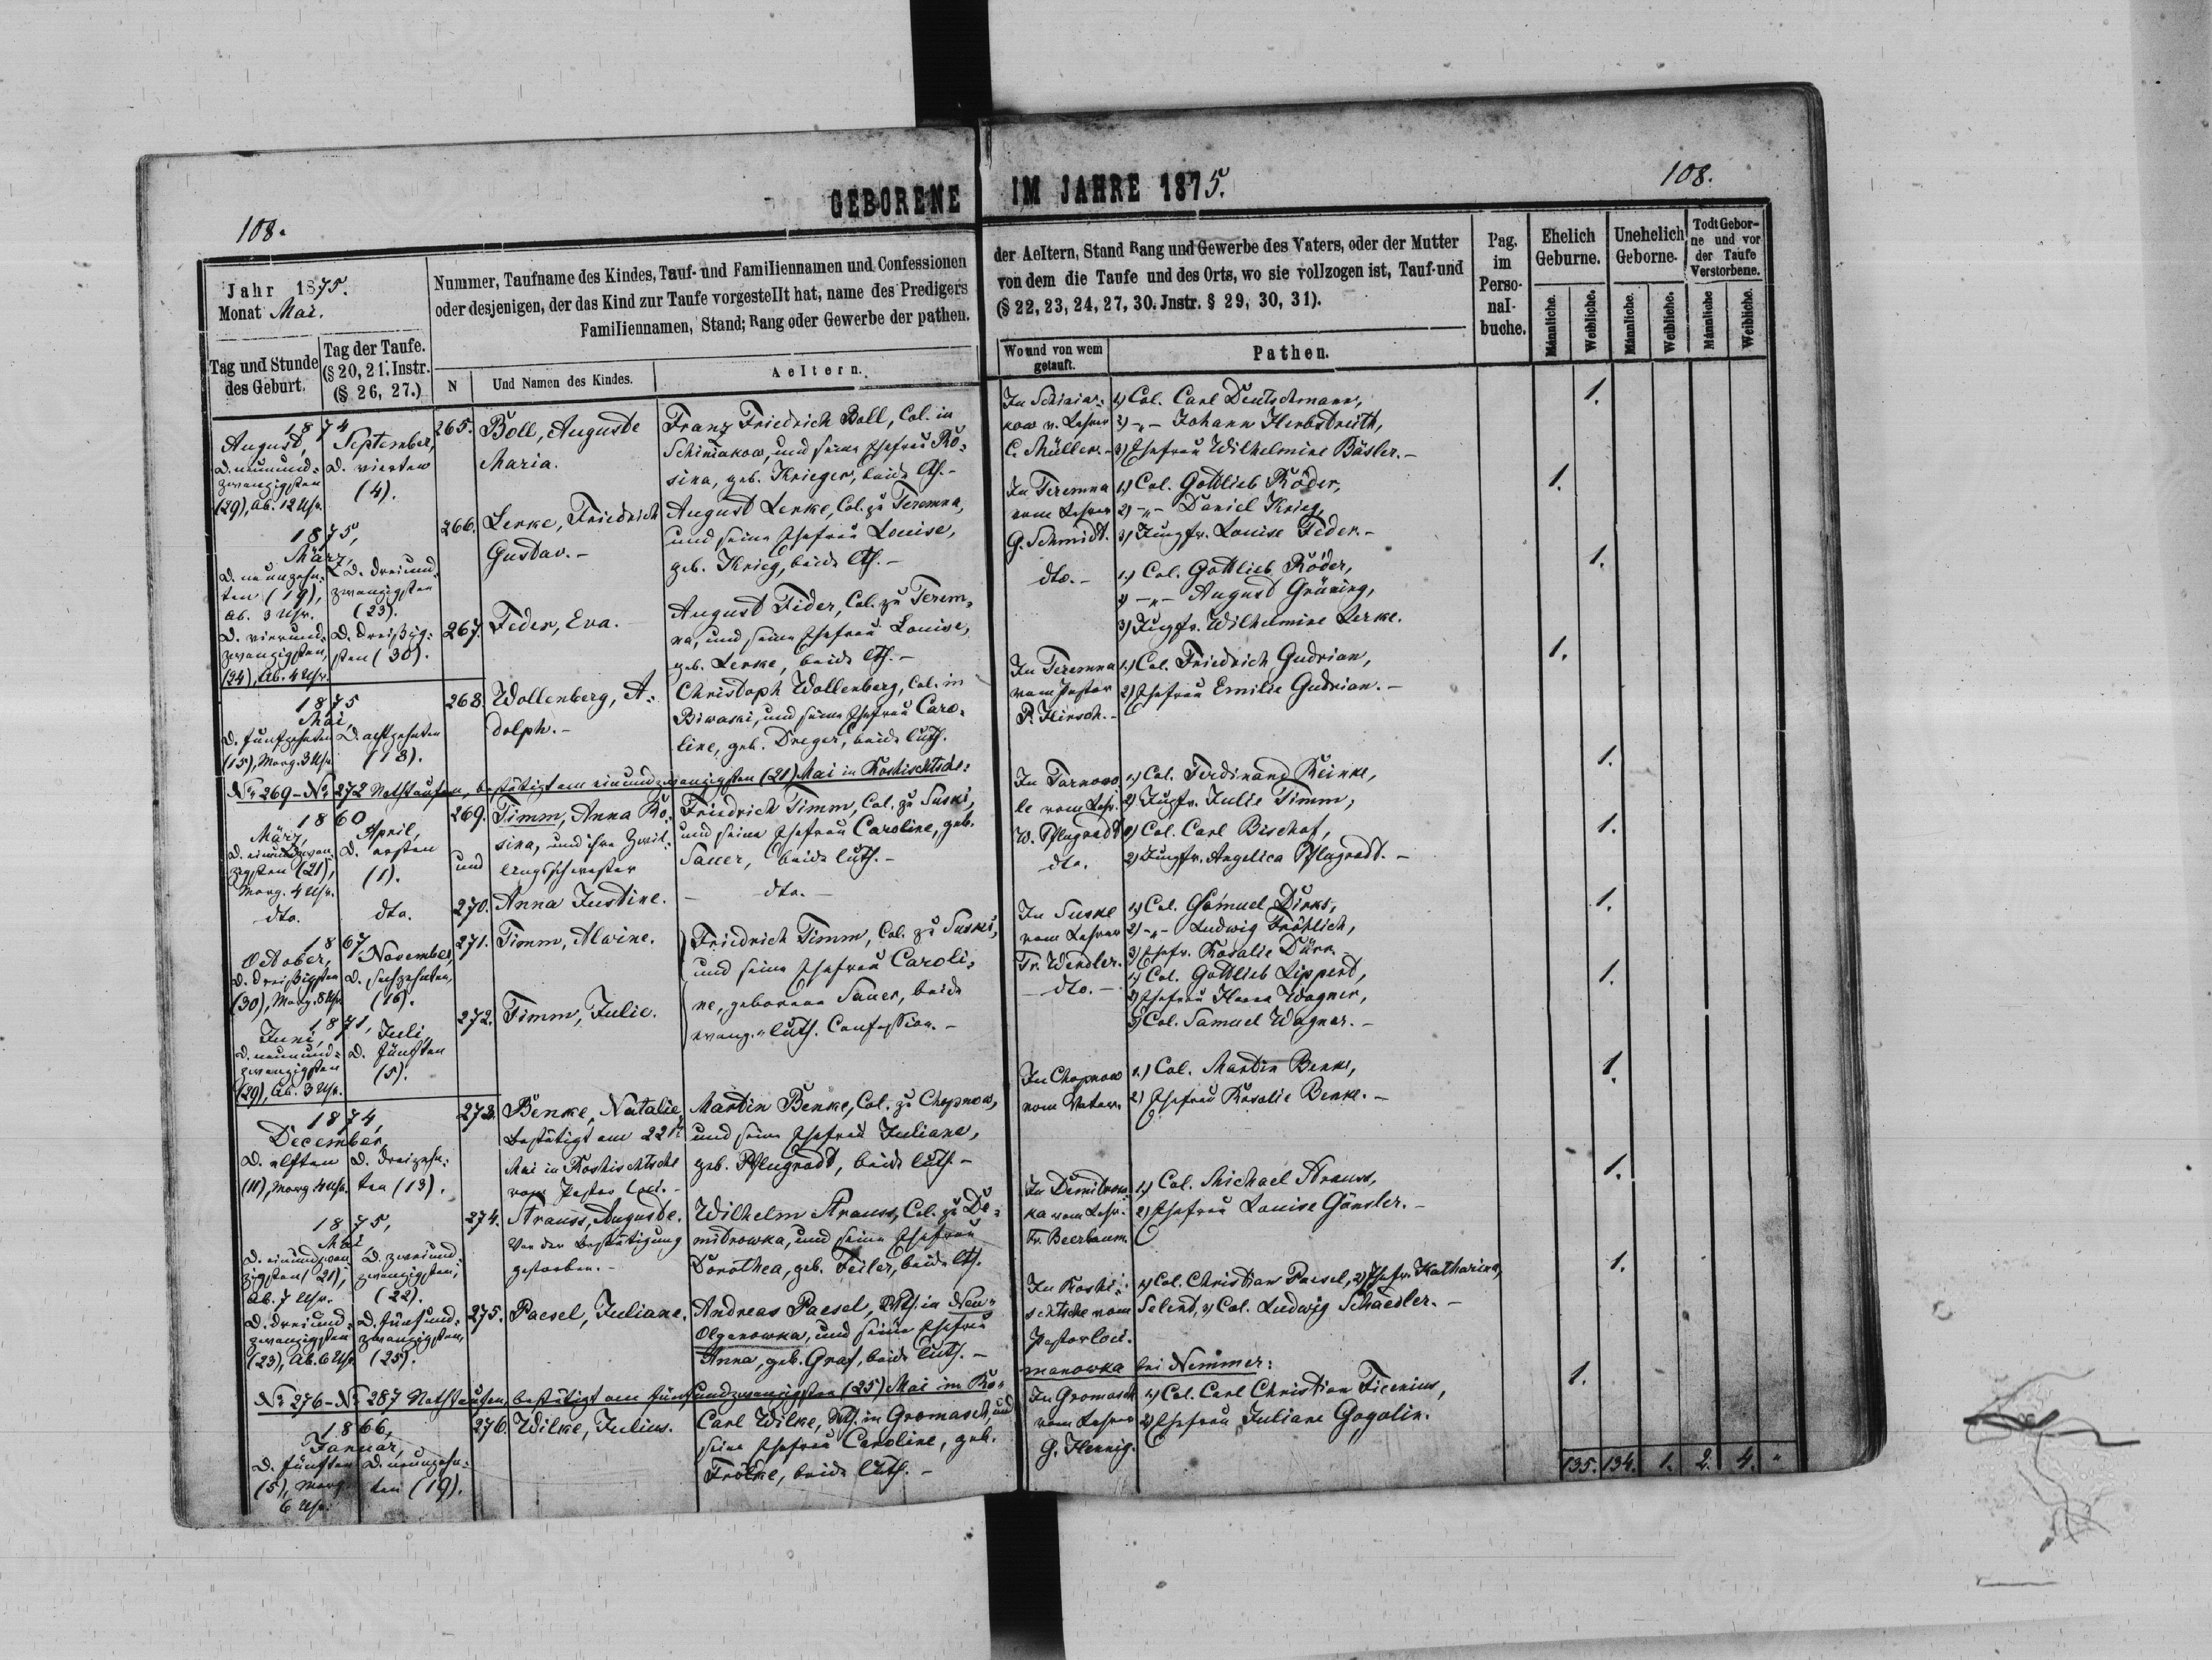 108.
GEBORENE
Jahr 1875.
Monat Mai.
Nummer, Taufname des Kindes, Tauf- und Familiennamen und Confessionen
oder desjenigen, der das Kind zur Taufe vorgestellt hat, name des Predigers
Familiennamen, Stand; Rang oder Gewerbe der pathen.
Tag und Stunde
des Geburt.
Tag der Taufe.
(§ 20, 21. Instr.
(§ 26, 27.)
N
Und Namen des Kindes.
Aeltern.
1874
August,
D. neunund-
zwanzigsten
(29), Ab. 12 Uhr.
September,
D. vierten
(4).
265.
Boll, Auguste
Maria.
Franz Friedrich Boll, Col. in
Schiniakow, und seine Ehefrau Ro-
sina, geb. Krieger, beide lth.-
1875,
März,
D. neunzehn-
ten (19),
Ab. 3 Uhr.
D. dreiund-
zwanzigsten
(23).
266.
Lenke, Friedrich
Gustav.-
August Lenke, Col. zu Teremna,
und seine Ehefrau Louise,
geb. Krieg, beide lth.-
D. vierund-
zwanzigsten,
(24), Ab. 4 Uhr.
D. dreißig-
sten (30).
267.
Feder, Eva.-
August Fider, Col. zu Terem-
na, und seine Ehefrau Louise,
geb. Lenke, beide lth.-
1875
Mai,
D. fünfzehnten
(15), Morg. 3 Uhr
D. achtzehnten
(18).
268.
Wollenberg, A-
dolph.-
Christoph Wollenberg, Col. in
Biwaski, und seine Ehefrau Caro-
line, geb. Dreger, beide luth.
No 269-No 272 Nothtaufen, bestätigt am einundzwanzigsten (21) Mai in Koshischtsche:
1860
März,
D. einundzwan-
zigsten (21),
Morg. 4 Uhr.
April,
D. ersten
(1).
269.
und
Timm, Anna Ro-
sina, und ihre Zwil-
lingsschwester
Friedrich Timm, Col. zu Suski,
und seine Ehefrau Caroline, geb.
Sauer, beide luth.-
dto.
dto.
270.
Anna Justine.
- dto.-
1867
October,
D. dreißigsten
(30), Morg. 8 Uhr
November,
D. sechzehnten,
(16).
271.
Timm, Alwine.
Friedrich Timm, Col. zu Suski,
und seine Ehefrau Caroli-
ne, geborene Sauer, beide
evang.-luth. Confession.-
1871,
Juni,
D. neunund-
zwanzigsten
(29), Ab. 3 Uhr.
Juli,
D. fünften
(5).
272.
Timm, Julie.
1874,
December,
D. elften
(11), Morg. 4 Uhr.
D. dreizehn-
ten (13).
273.
Benke, Natalie,
bestätigt am 22ten
Mai in Koshischtsche
vom Pastor loci.-
Martin Benke, Col. zu Chopnow,
und seine Ehefrau Juliane,
geb. Pflugradt, beide luth.-
1875,
Mai,
D. einundzwan-
zigsten (21),
Ab. 7 Uhr.
D. zweiund-
zwanzigsten,
(22).
274.
Strauss, Auguste.
Vor der Bestätigung
gestorben.-
Wilhelm Strauss, Col. zu De-
mitrowka, und seine Ehefrau
Dorothea, geb. Feiler, beide lth.
D. dreiund-
zwanzigsten
(23), Ab. 6 Uhr.
D. fünfund-
zwanzigsten,
(25).
275.
Paesel, Juliane.
Andreas Paesel, in Neu-
Olganowka, und seine Ehefrau
Anna, geb. Graf, beide luth.-
No 276-No 287 Nothtaufen, bestätigt am fünfundzwanzigsten (25) Mai in Ro-
1866,
Januar,
D. fünften
(5), Morg.
6 Uhr.
D. neunzehn-
ten (19).
276.
Wilke, Julius.
Carl Wilke, in Gromasch, und
seine Ehefrau Caroline, geb.
Frölke, beide luth.-
108.
IM JAHRE 1875.
der Aeltern, Stand Rang und Gewerbe des Vaters, oder der Mutter
von dem die Taufe und des Orts, wo sie vollzogen ist, Tauf-und
(§ 22, 23, 24, 27, 30. Jnstr. § 29, 30, 31).
Wo und von wem
getauft.
Pathen.
Pag.
im
Perso-
nal-
buche.
Ehelich
Geburne.
Unehelich
Geborne.
Todt Gebor-
ne und vor
der Taufe
Verstorbene.
Männliche.
Weibliche.
Männliche.
Weibliche.
Männliche
Weibliche.
In Schinia-
kow v. Lehrer
C. Müller.-
1) Col. Carl Deutschmann,
2) -"- Johann Herbstreith,
3) Ehefrau Wilhelmine Bäsler.-
1.
In Teremna
vom Lehrer
G. Schmidt.
1) Col. Gottlieb Röder,
2) -"- Daniel Krieg,
3) Jungfr. Louise Feder.-
1.
dto.-
1) Col. Gottlieb Röder,
2) -"- August Grüning,
3) Jungfr. Wilhelmine Lerke.
1.
In Teremna
vom Pastor
P. Hirsch.-
1) Col. Friedrich Gudrian,
2) Ehefrau Emilie Gudrian.-
1.
In Tarnowo-
le vom Lehr.
W. Pflugradt
1) Col. Ferdinand Reinke,
2) Jungfr. Julie Timm,
1.
dto.
1) Col. Carl Bischof,
2) Jungfr. Angelica Pflugradt.-
1.
In Suske
vom Lehrer
Fr. Wendler.
1) Col. Samuel Dirks,
2) -"- Ludwig Fröhlich,
3) Ehefr. Rosalie Dürr.-
1.
- dto.-
1) Col. Gottlieb Lippert,
2) Ehefrau Wagner,
3) Col. Samuel Wagner.-
1.
In Chopnow
vom Vater.
1) Col. Martin Benke,
2) Ehefrau Rosalie Benke.-
1.
In Demitrow-
ka vom Lehr.
Fr. Beerbaum.
1) Col. Michael Strauss,
2) Ehefrau Louise Gänsler.-
1.
In Koshi-
schtsche vom
Pastor loci.
1) Col. Christian Paesel, 2) Ehefr. Katharina
Selent, 3) Col. Ludwig Schaedler.-
1.
manowka bei Nemmer:
In Gromasch
vom Lehrer
G. Hennig.
1) Col. Carl Christian Ficenius,
2) Ehefrau Juliane Gogolin.
1.
135. 134. 1. 2. 4. "